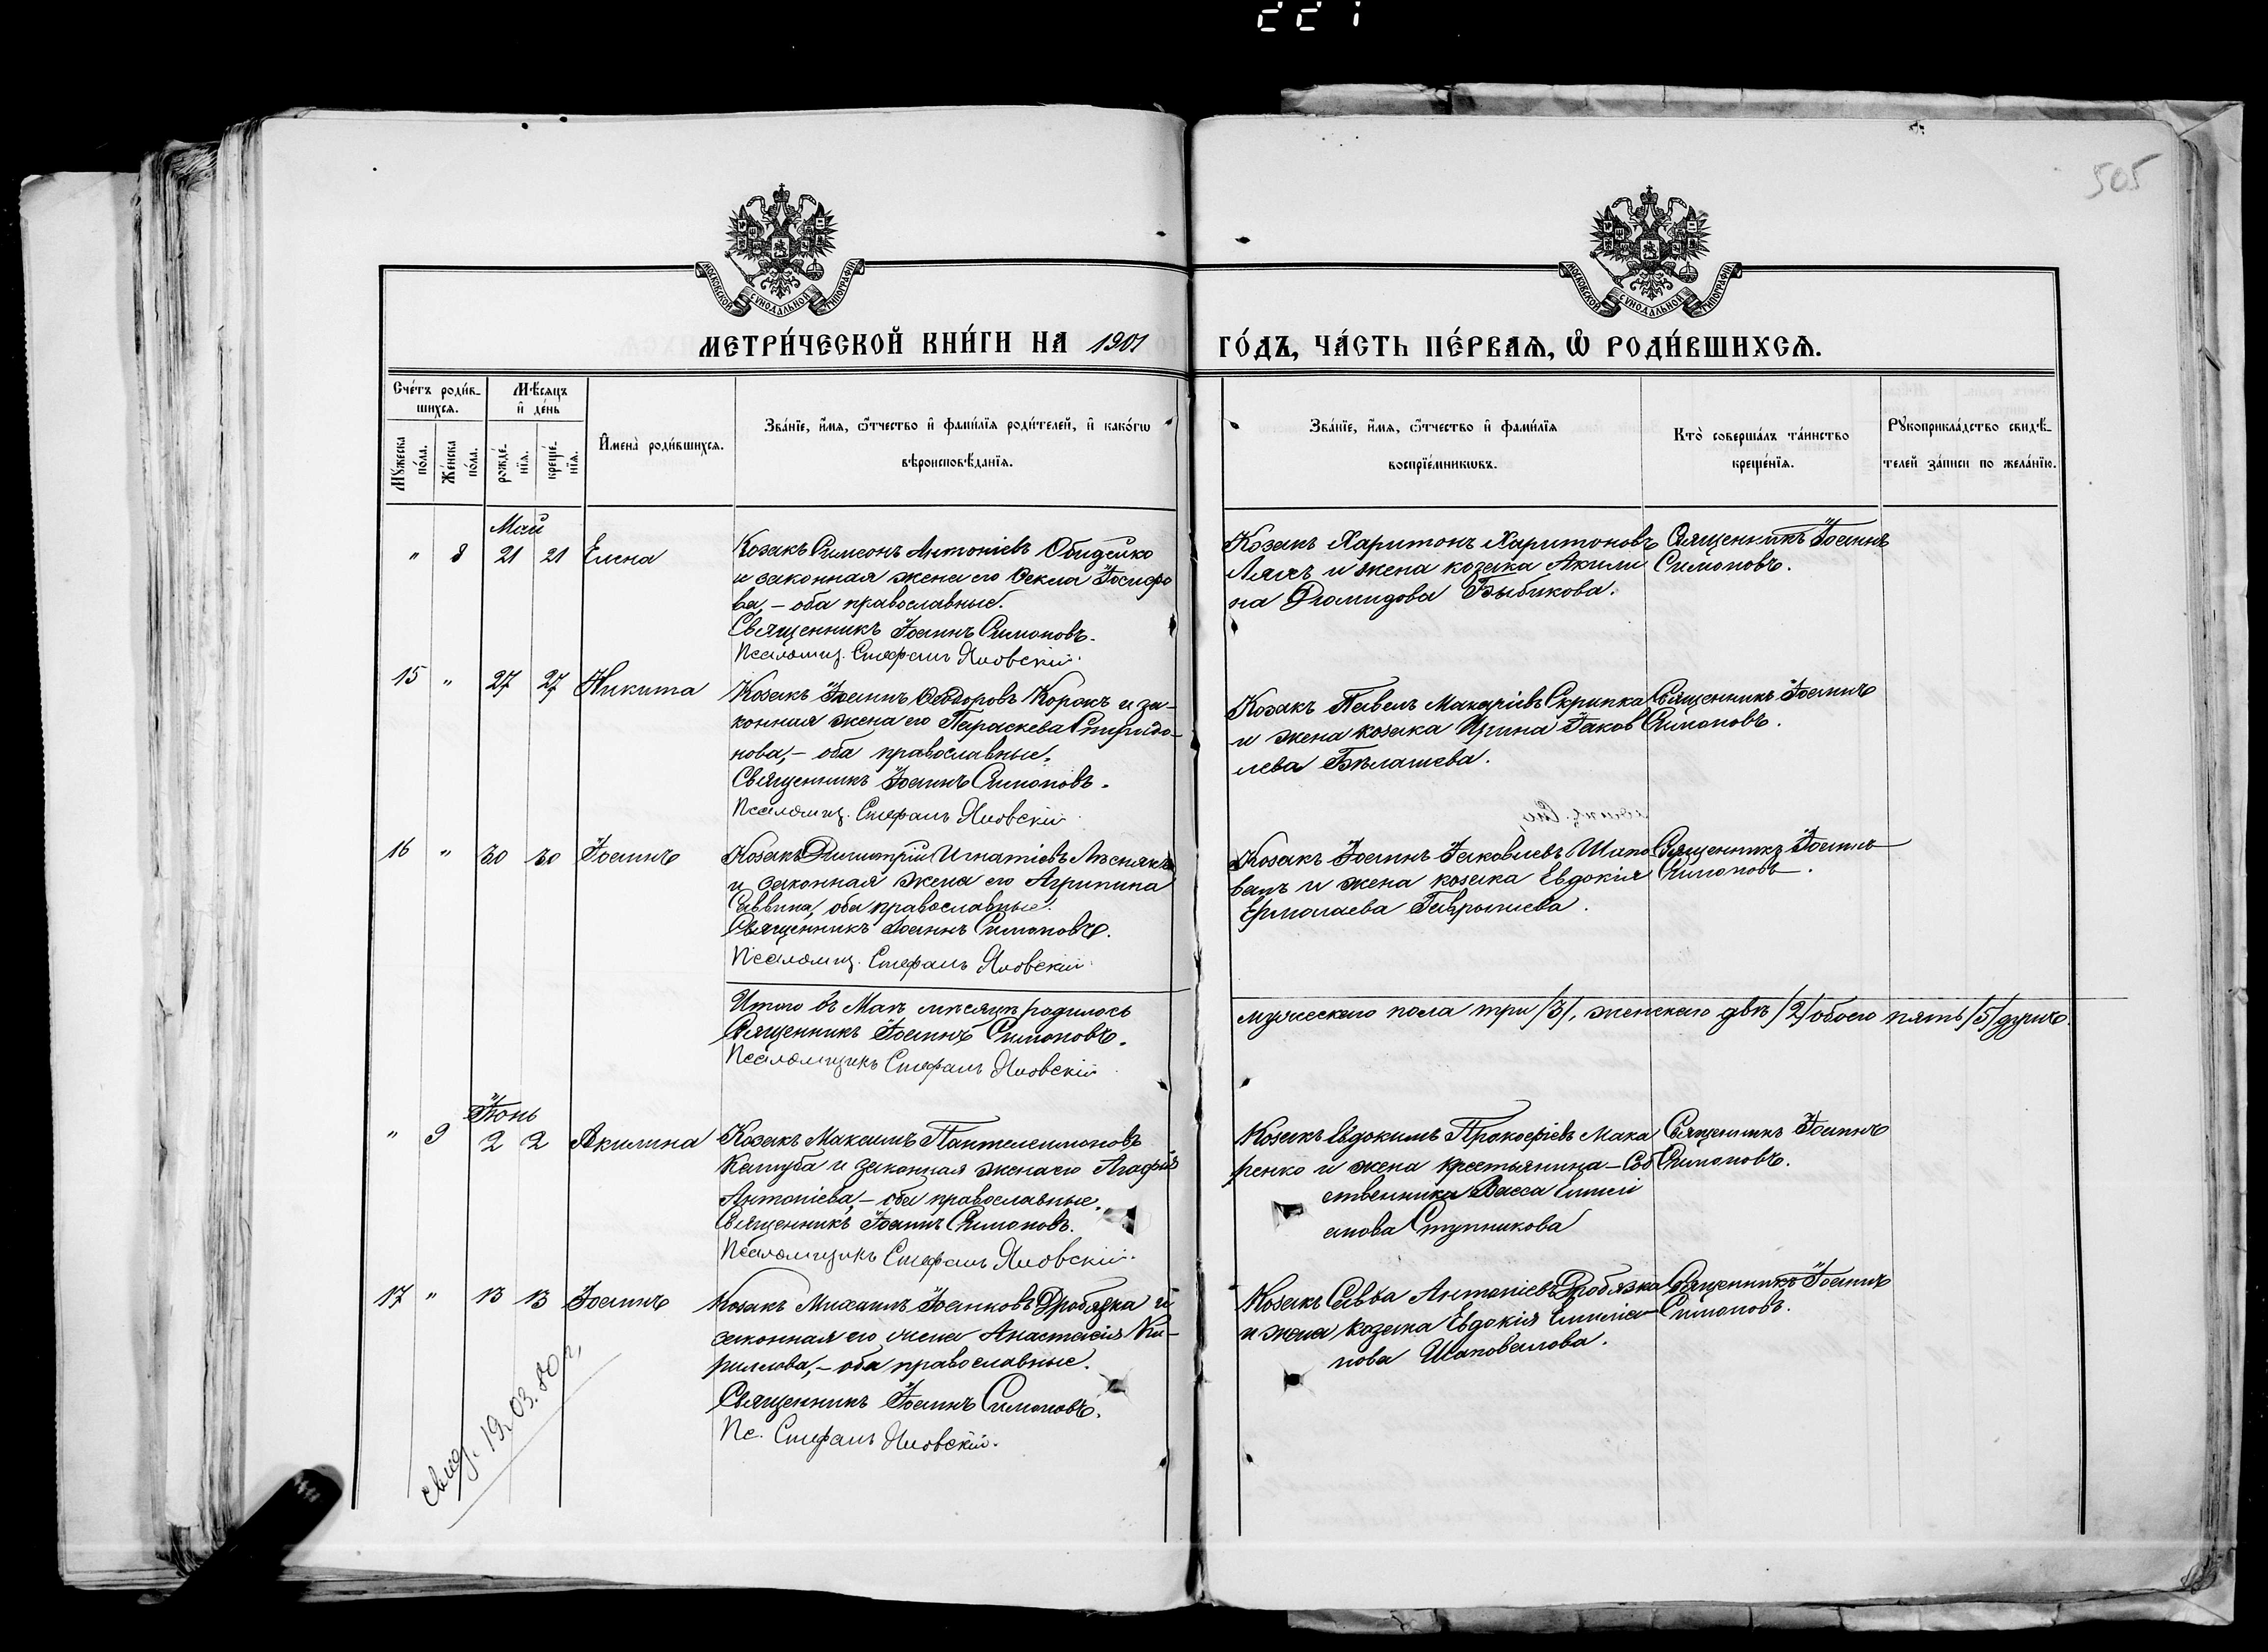 221
505
МОСКОВСКОЙ СѴНОДАЛЬНОЙ ТИПОГРАФІИ
МОСКОВСКОЙ СѴНОДАЛЬНОЙ ТИПОГРАФІИ
МЕТРИ́ЧЕСКОЙ КНИ́ГИ НА 1901 ГО́ДЪ, ЧА́СТЬ ПЕ́РВАѦ, Ѡ҆ РОДИ́ВШИХСѦ.
Сче́тъ роди́в-
шихсѧ.
Мꙋ́жеска
по́ла.
Же́нска
по́ла.
Мѣ́сѧцъ
и҆ де́нь
рожде́-
нїѧ.
креще́-
нїѧ.
И҆мена̀ роди́вшихсѧ.
Зва́нїе, и҆́мѧ, ѻ҆́тчество и҆ фами́лїѧ роди́телей, и҆ како́гѡ
вѣроисповѣ́данїѧ.
Зва́нїе, и҆́мѧ, ѻ҆́тчество и҆ фами́лїѧ
воспрїе́мникѡвъ.
Кто̀ соверша́лъ та́инство
креще́нїѧ.
Рꙋкоприкла́дство свидѣ́-
телей за́писи по жела́нїю.
Май
" 8 21 21 Елена
Козакъ Симеонъ Антоніевъ Обидейко
и законная жена его Ѳекла Іосифо
ва, – оба православные.
Священникъ Іоаннъ Симоновъ.
Псаломщ. Стефанъ Яновскій.
Козакъ Харитонъ Харитоновъ
Ляхъ и жена козака Акили
на Діомидова Быбикова.
Священникъ Іоаннъ
Симоновъ.
15 " 27 27 Никита
Козакъ Іоаннъ Ѳеодоровъ Коракъ и за-
конная жена его Параскева Спиридо-
нова, – оба православные.
Священникъ Іоаннъ Симоновъ.
Псаломщ. Стефанъ Яновскій
Козакъ Павелъ Макаріевъ Скрипка
и жена козака Ирина Іаков
лева Бѣлашева.
Священникъ Іоаннъ
Симоновъ.
16 " 30 30 Іоаннъ
Козакъ Димитрій Игнатіевъ Лѣснякъ
и законная жена его Агрипина
Саввина, оба православные.
Священникъ Іоаннъ Симоновъ.
Псаломщ. Стефанъ Яновскій
Козакъ Іоаннъ Іаковлевъ Шапо
валъ и жена козака Евдокія
Ермолаева Гаврышева.
Священникъ Іоаннъ
Симоновъ.
Итого въ Маѣ мѣсяцѣ родилось мужескаго пола три /3/, женскаго двѣ /2/ обоего пять /5/ душъ.
Священникъ Іоаннъ Симоновъ.
Псаломщикъ Стефанъ Яновскій
Іюнь
" 9 2 2 Акилина
Козакъ Максимъ Пантелеимоновъ
Капуба и законная жена его Агафія
Антоніева, – оба православные.
Священникъ Іоаннъ Симоновъ.
Псаломщикъ Стефанъ Яновскій.
Козакъ Евдокимъ Прокофіевъ Мака
ренко и жена крестьянина – Соб
ственника Васса
Ступникова
Священникъ Іоаннъ
Симоновъ.
17 " 13 13 Іоаннъ
Козакъ Михаилъ Іоанновъ Дробязка и
законная его жена Анастасія Ки-
риллова, – оба православные.
Священникъ Іоаннъ Симоновъ.
Пс. Стефанъ Яновскій.
Козакъ Савва Антоніевъ Дробязка
и жена козака Евдокія Емилiа-
нова Шаповалова.
Священникъ Іоаннъ
Симоновъ.
свид. 19.03.80 г.